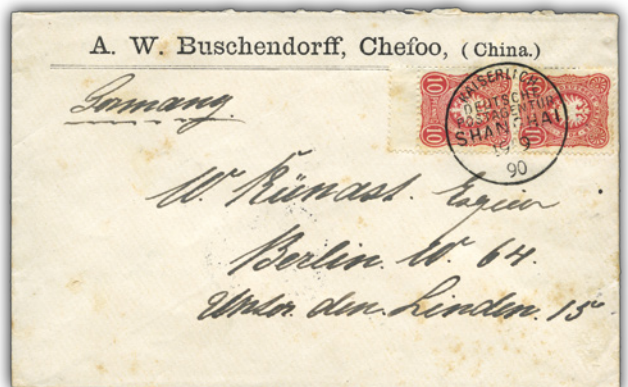 A. W. Buschendorff, Chefoo, (China.)
Germany.
10 10
10 10
KAISERLICH
DEUTSCHE
POSTAGENTUR
SHANGHAI
9
90
W. Künast. Esquire
Berlin. W. 64.
Unter den Linden. 15